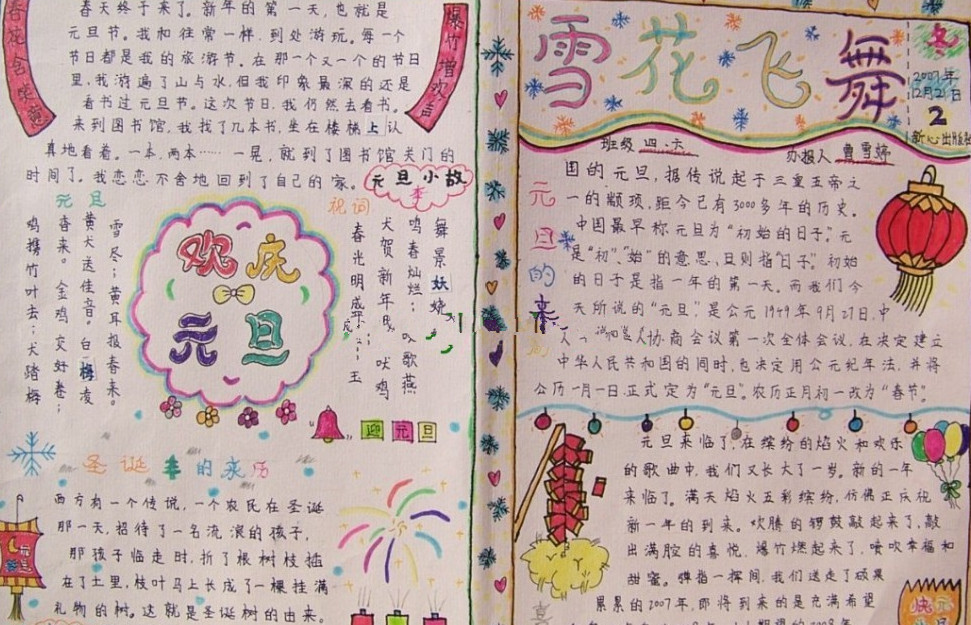 春天终于来了。新年的第一天,也就是
元旦节。我和往常一样,到处游玩。每一个
节日都是我的旅游节。在那一个又一个的节日
里,我游遍了山与水,但我印象最深的还是
看书过元旦节。这次节日,我仍然去看书。
来到图书馆,我找了几本书,坐在楼梯上认
真地看着。一本,两本……一晃,就到了图书馆关门的
时间了。我恋恋不舍地回到了自己的家。
爆竹增欢声
元旦小故
李
元旦
雪尽;黄耳报春来。
黄犬送佳音。白梅凌
春来。金鸡交好卷;
鸡携竹叶去;犬踏梅
欢庆
元旦
祝词
舞景妖娆
鸣春灿烂;歌燕
犬贺新年吠鸡
春光明成玉
迎元旦
圣诞的来历
西方有一个传说,一个农民在圣诞
那一天,招待了一名流浪的孩子,
那孩子临走时,折了根树枝插
在了土里,枝叶马上长成了一棵挂满
礼物的树。这就是圣诞树的由来。
雪花飞舞
冬
2007年
12月21日
2
新心出版社
班级 四.六
办报人 曹雪婷
元旦的来
国的元旦,据传说起于三皇五帝之
一的颛顼,距今已有3000多年的历史。
中国最早称元旦为“初始的日子”。元
是“初”“始”的意思,旦则指“日子”。初始
的日子是指一年的第一天。而我们今
天所说的“元旦”,是公元1949年9月27日,中
协商会议第一次全体会议,在决定建立
中华人民共和国的同时,也决定用公元纪年法,并将
公历一月一日正式定为“元旦”。农历正月初一改为“春节”。
元旦来临了,在缤纷的焰火和欢乐
的歌曲中,我们又长大了一岁。新的一年
来临了。满天焰火五彩缤纷,仿佛正庆祝
新一年的到来。欢腾的锣鼓敲起来了,敲
出满腔的喜悦,爆竹燃起来了,喷吹幸福和
甜蜜。弹指一挥间,我们送走了硕果
累累的2007年,即将到来的是充满希望